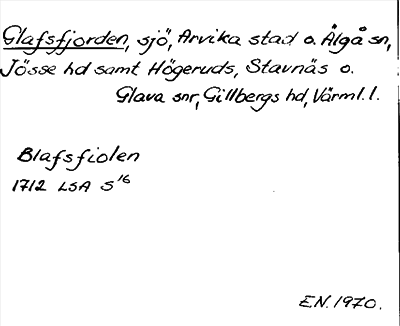 Glafsfjorden, sjö, Arvika stad o. Älgå sn,
Jösse hd samt Högeruds, Stavnäs o.
Glava snr, Gillbergs hd, Värml. l.
Blafsfiolen
1712 LSA S 16
E.N. 1970.